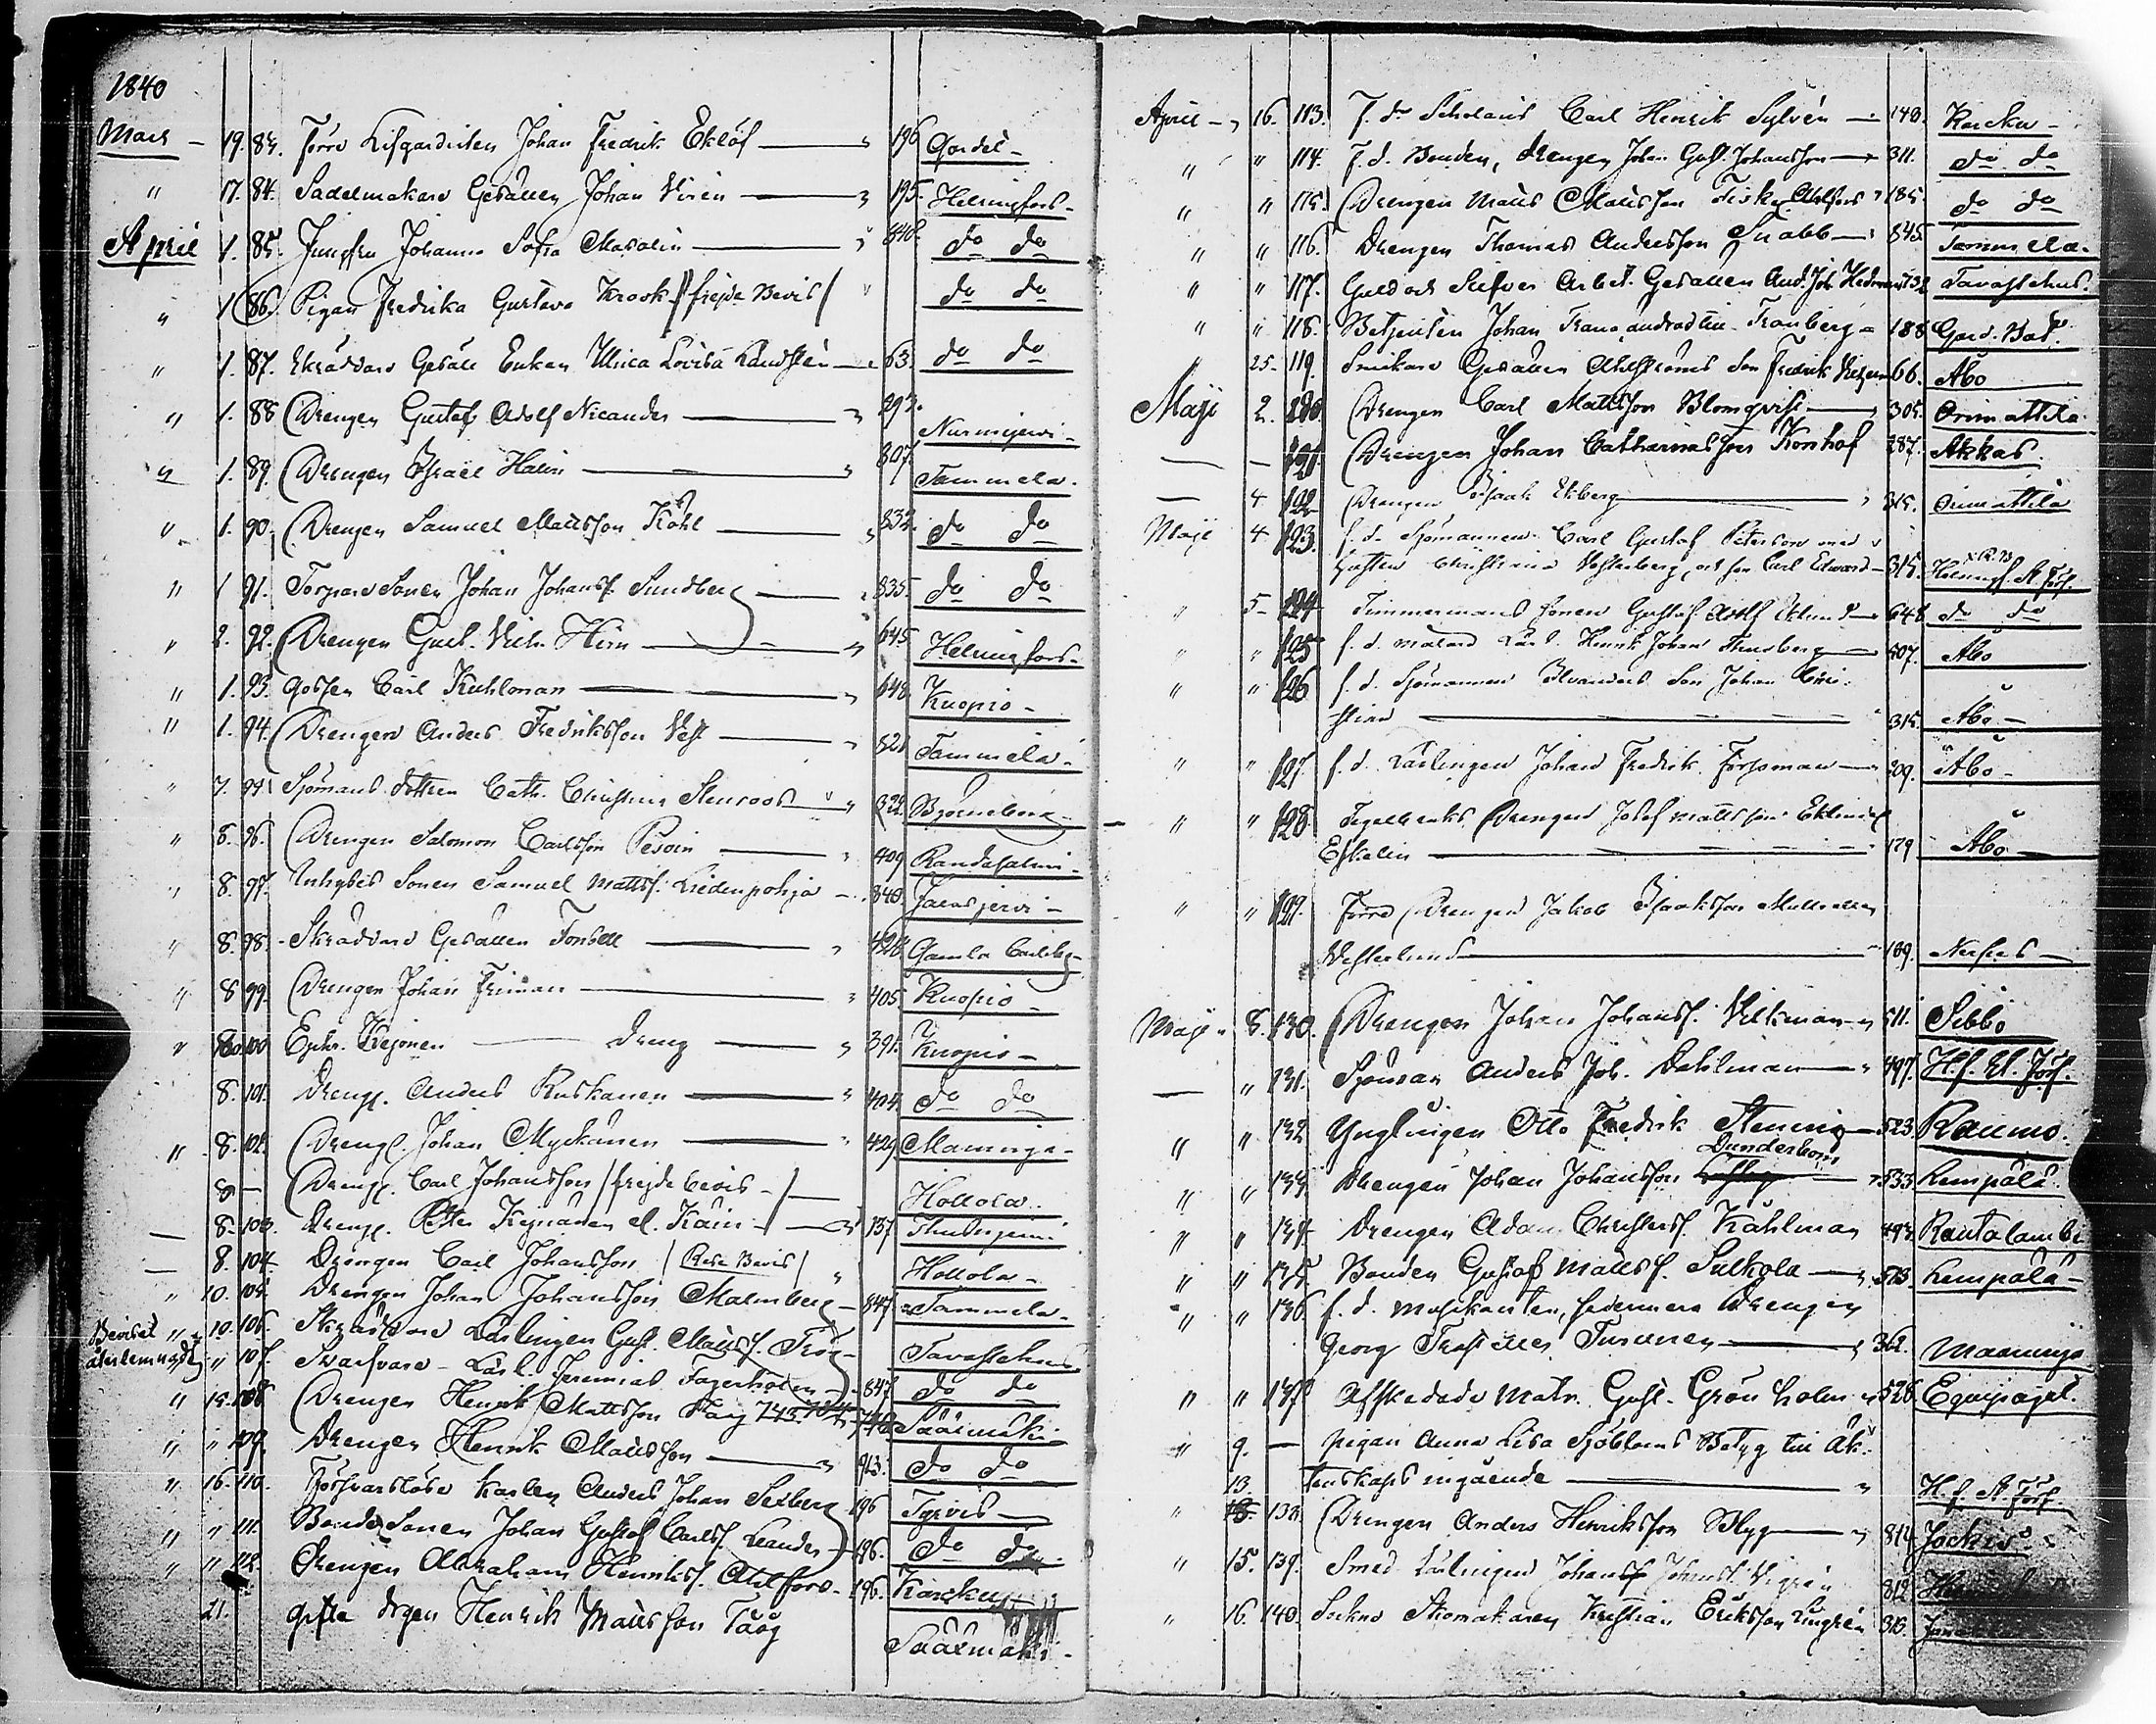 1840
Mars - 19. 83. Förre Lifgardisten Johan Fredrik Eklöf — " 196 Gardet -
" 17. 84. Sadelmakare Gesällen Johan Virén — " 195. Helsingfors -
April 1. 85. Jungfru Johanna Sofia Masalin — " 840. do do
" 1 86. Pigan Fredrika Gustava Krook /frejde Bevis/ " do do
" 1. 87. Skräddare Gesäll Enkan Ulrica Lovisa Landstén — " 63. do do
" 1. 88 Drengen Gustaf Adolf Nicander — " 293. Nurmijervi -
" 1. 89. Drengen Israel Halin — " 807 Tammela.
" 1. 90. Drengen Samuel Mattsson Köhl — " 832. do do
" 1 91. Torpare Sonen Johan Johanss. Sundberg — " 835 do do
" 2. 92. Drengen Gust. Vilh. Hirn — " 645 Helsingfors -
" 1. 93. Gossen Carl Kuhlman — " 648 Kuopio -
" 1. 94. Drengen Anders Fredriksson Vest — " 821 Tammela -
" 7. 95 Sjömans dottren Cath. Christina Stenroos — " 322. Björneborg
" 8. 96. Drengen Salomon Carlsson Pesoin — " 409 Randasalmi -
" 8. 97. Inhyses Sonen Samuel Mattss. Liedenpohja — 840. Jalasjervi -
" 8. 98. Skräddare Gesällen Forsell — " 424 Gamla Carleby -
" 8 99. Drengen Johan Friman — " 405 Kuopio -
" 8. 100 Ephr. Keijonen — Dreng — " 391. Kuopio -
8. 101. Dreng. Anders Ruskanen — " 404. do do
" 8. 102. Dreng. Johan Myckänen — " 429 Maaninga -
8 — Dreng. Carl Johansson /frejdebevis -/ — Hollola
— 8. 103. Dreng. Petter Keinänen el. Käin — " 137
— 8. 104. Drengen Carl Johansson /Rese Bevis/ " Hollola -
" 10. 105. Drengen Johan Johansson Malmberg - 847. Tammela -
Beviset " 10. 106. Skräddare Lärlingen Gust. Mattss. Frög - Tavastehus
återlemnadt " " 107. Svarfvare - Lärl. Jeremias Fagerholm — 847 do do
" 15. 108 Drengen Henrik Mattsson Tåög 745 Sääxmäki
" " 109. Drengen Henrik Mattsson — " 913. do do
" 16. 110. Försvarslöse Karlen Anders Johan Sexberg 196 Tyrvis —
" " 111. Bonde Sonen Johan Gustaf Carlss. Leander - 196. do do
" " 112. Drengen Abraham Henrikss. Ahlfors - 196. Karcku
21. gifte drgen Henrik Mattsson Tåög Sääxmäki -
April - " 16. 113. F. d. Scholaris Carl Henrik Sylvén — 140. Karcku -
" " 114. F. d. Bonden, drengen Johan Gust. Johansson — 311. do do
" " 115. Drengen Matts Mattsson Ahlfors " 185. do do
" " 116. Drengen Thomas Andersson Snabb — 845. Tammela -
" " 117. Guld och Silfver Arbet. Gesällen And. Joh. Hedman 732 Tavastehus.
" " 118. Betjenten Johan Tranberg - 188 Gard. Bat.
" 25 - 119. Snickare Gesällen Ahlströms Son Fredrik 66. Åbo
Maji 2. 120. Drengen Carl Mattsson Blomqvist — " 305. Orimattila
— - 121. Drengen Johan Catharinasson Kornhof 287. Akkas.
— 4 122 Drengen Isaak Ekberg — " 315. Orimattila
Maji 4 123. f. d. Sjömannen Carl Gustaf Peterson med
hustru Christina Vesterberg, och son Carl Edvard - 315. Helsingf. St. Förs.
" 5 - 124 Timmermans sonen Gustaf Adolf Eklund — 648 do do
" " 125 f. d. målare Lärl. Henrik Johan Thusberg — 507. Åbo
" " 126 f. d. Sjömannen Ilvanders Son Johan Chri-
stian — " 315. Åbo -
" " 127. f. d. Lärlingen Johan Fredrik Forsman — " 209. Åbo -
" " 128 Tegelbruks Drengen Josef Mattsson Eklund
Eskelin — " 179 Åbo —
" " 129. Förre Drengen Jakob Isaksson
Vesterlund — " 189. Nerpes —
Maji " 8. 130. Drengen Johan Johanss. Vilkman " 511. Sibbo
— " 131. Sjöman Anders Joh. Dahlman — " 497. H.f. St. Förs.
" " 132 Ynglingen Otto Fredrik Stening — 523 Raumo.
Dunderborg
" " 133. Drengen Johan Johansson — " 533 Lempälä.
" " 134 Drengen Adam Christerss. Kåhlman 493. Rautalambi
" " 135 Bonden Gustaf Mattss. Sulkola — " 513. Lempälä -
" " 136. f. d. Musikanten, sedermera Drengen
Georg Turunen — " 362. Maaninga
" " 137 Afskedade Matr. Gust. Grönholm " 526. Equipaget.
" 9. — pigan Anna Lisa Sjöbloms Betyg till Äk-
13. tenskaps ingående — " H.f. St. Förs
" 138. Drengen Anders Henriksson Blyg — " 814 Jockis
" 15. 139. Smed Lärlingen Johan Johanss. Vigrén 812
" 16. 140. Sockne Skomakaren Kristian Eriksson Ljungrén 315.